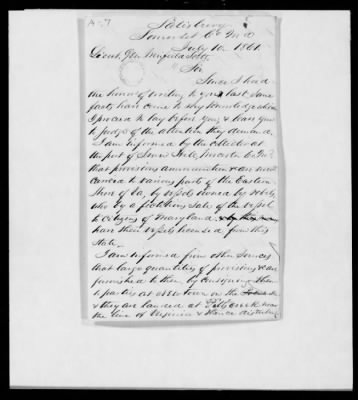 Salisbury
Somerset Co Md
July 10 1861
Lieut. Gen Winfield Scott
Sir
Since I had
the honor of writing to you last, some
facts have come to my knowledge which
I proceed to lay before you, & leave you
to judge of the attention they demand.
I am informed by the collector at
the port of Snow Hill, Worcester Co Md.
that provisions ammunition & are
carried to various parts of the Eastern
Shore of Va, by vessels owned by rebels
who by a fictitious sale of the vessel
to citizens of Maryland
have their vessels licensed from this
State.
I am informed from other sources
that large quantities of provisions & are
furnished to them by consigning them
to parties at Newtown on the
& they are landed at Pitts Creek near
the line of Virginia & thence distributed